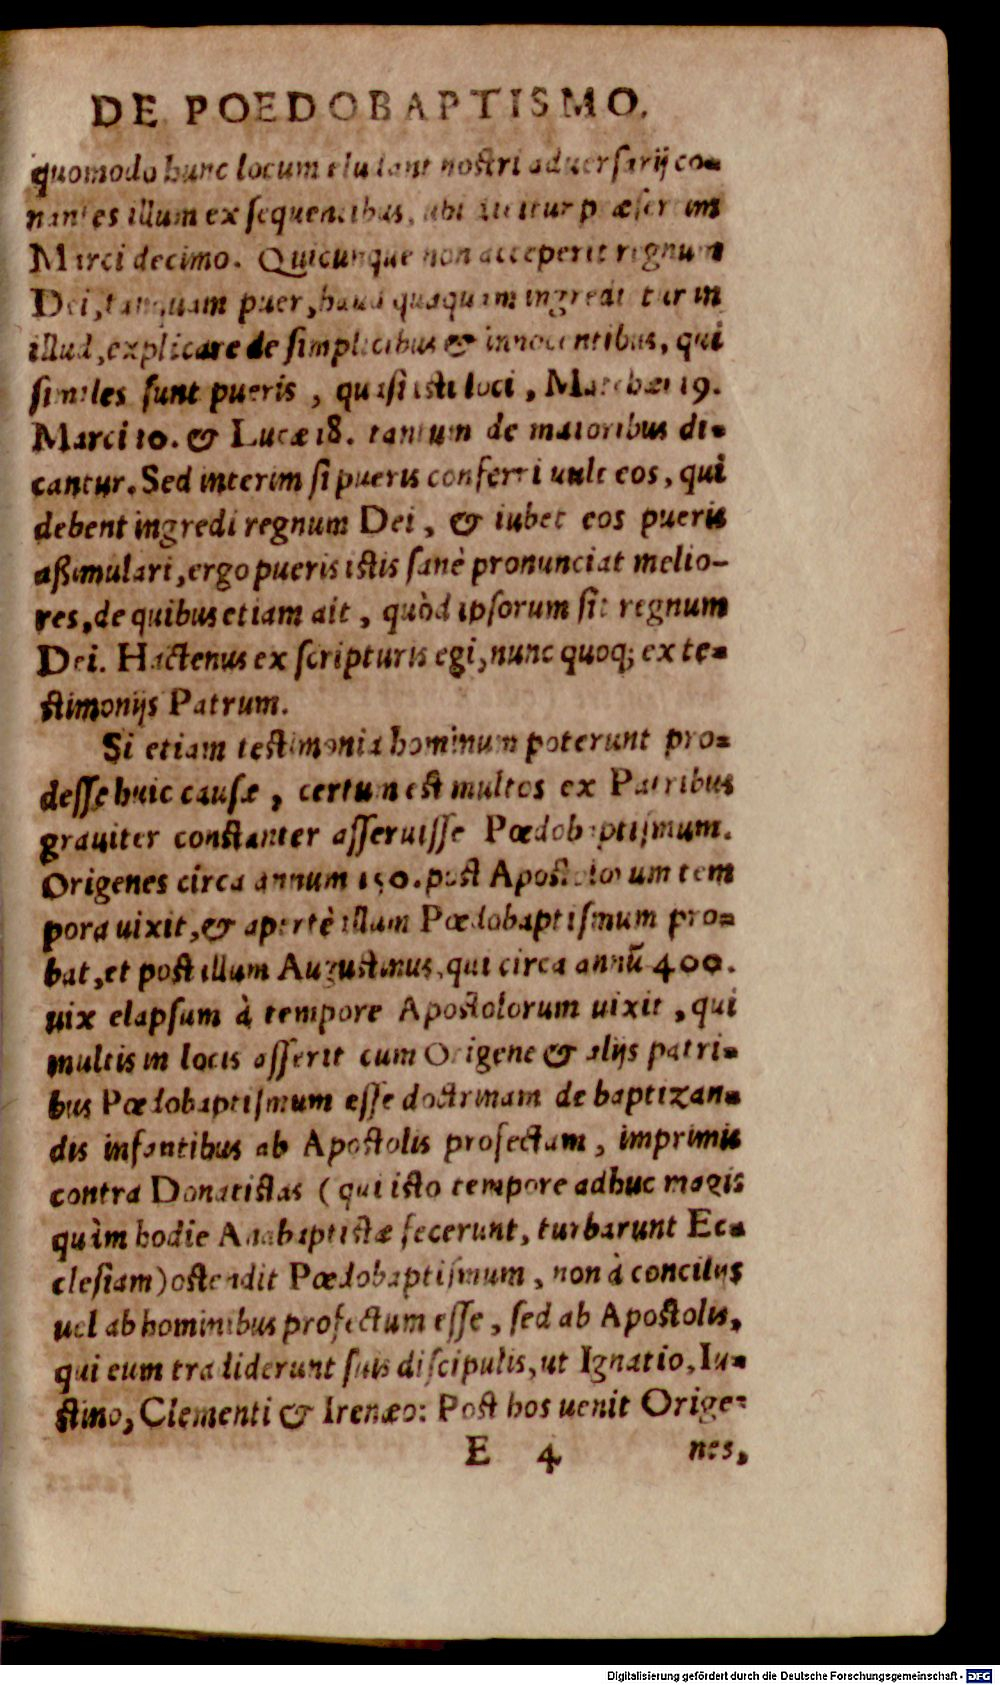 DE POEDOBAPTISMO.
quomodo hunc locum eludant nostri aduersarij co-
nantes illum ex sequentibus, ubi dicitur præsertim
Marci decimo. Quicunque non acceperit regnum
Dei, tanquam puer, haud quaquam ingredietur in
illud, explicare de simplicibus & innocentibus, qui
similes sunt pueris, quasi isti loci, Matthæi 19.
Marci 10. & Lucæ 18. tantum de maioribus di-
cantur. Sed interim si pueris conferri uult eos, qui
debent ingredi regnum Dei, & iubet eos pueris
aßimulari, ergo pueris istis sanè pronunciat melio-
res, de quibus etiam ait, quòd ipsorum sit regnum
Dei. Hactenus ex scripturis egi, nunc quoq; ex te-
stimonijs Patrum.
Si etiam testimonia hominum poterunt pro-
desse huic causæ, certum est multos ex Patribus
grauiter constanter asseruisse Pœdobaptismum.
Origenes circa annum 150. post Apostolorum tem
pora uixit, & apertè illum Pœdobaptismum pro-
bat, et post illum Augustinus, qui circa annũ 400.
uix elapsum à tempore Apostolorum uixit, qui
multis in locis asserit cum Origene & alijs patri-
bus Pœdobaptismum esse doctrinam de baptizan-
dis infantibus ab Apostolis profectam, imprimis
contra Donatistas (qui isto tempore adhuc magis
quàm hodie Anabaptistæ fecerunt, turbarunt Ec-
clesiam) ostendit Pœdobaptismum, non à concilijs
uel ab hominibus profectum esse, sed ab Apostolis,
qui eum tradiderunt suis discipulis, ut Ignatio, Iu-
stino, Clementi & Irenæo: Post hos uenit Orige-
E 4 nes,
Digitalisierung gefördert durch die Deutsche Forschungsgemeinschaft - DFG